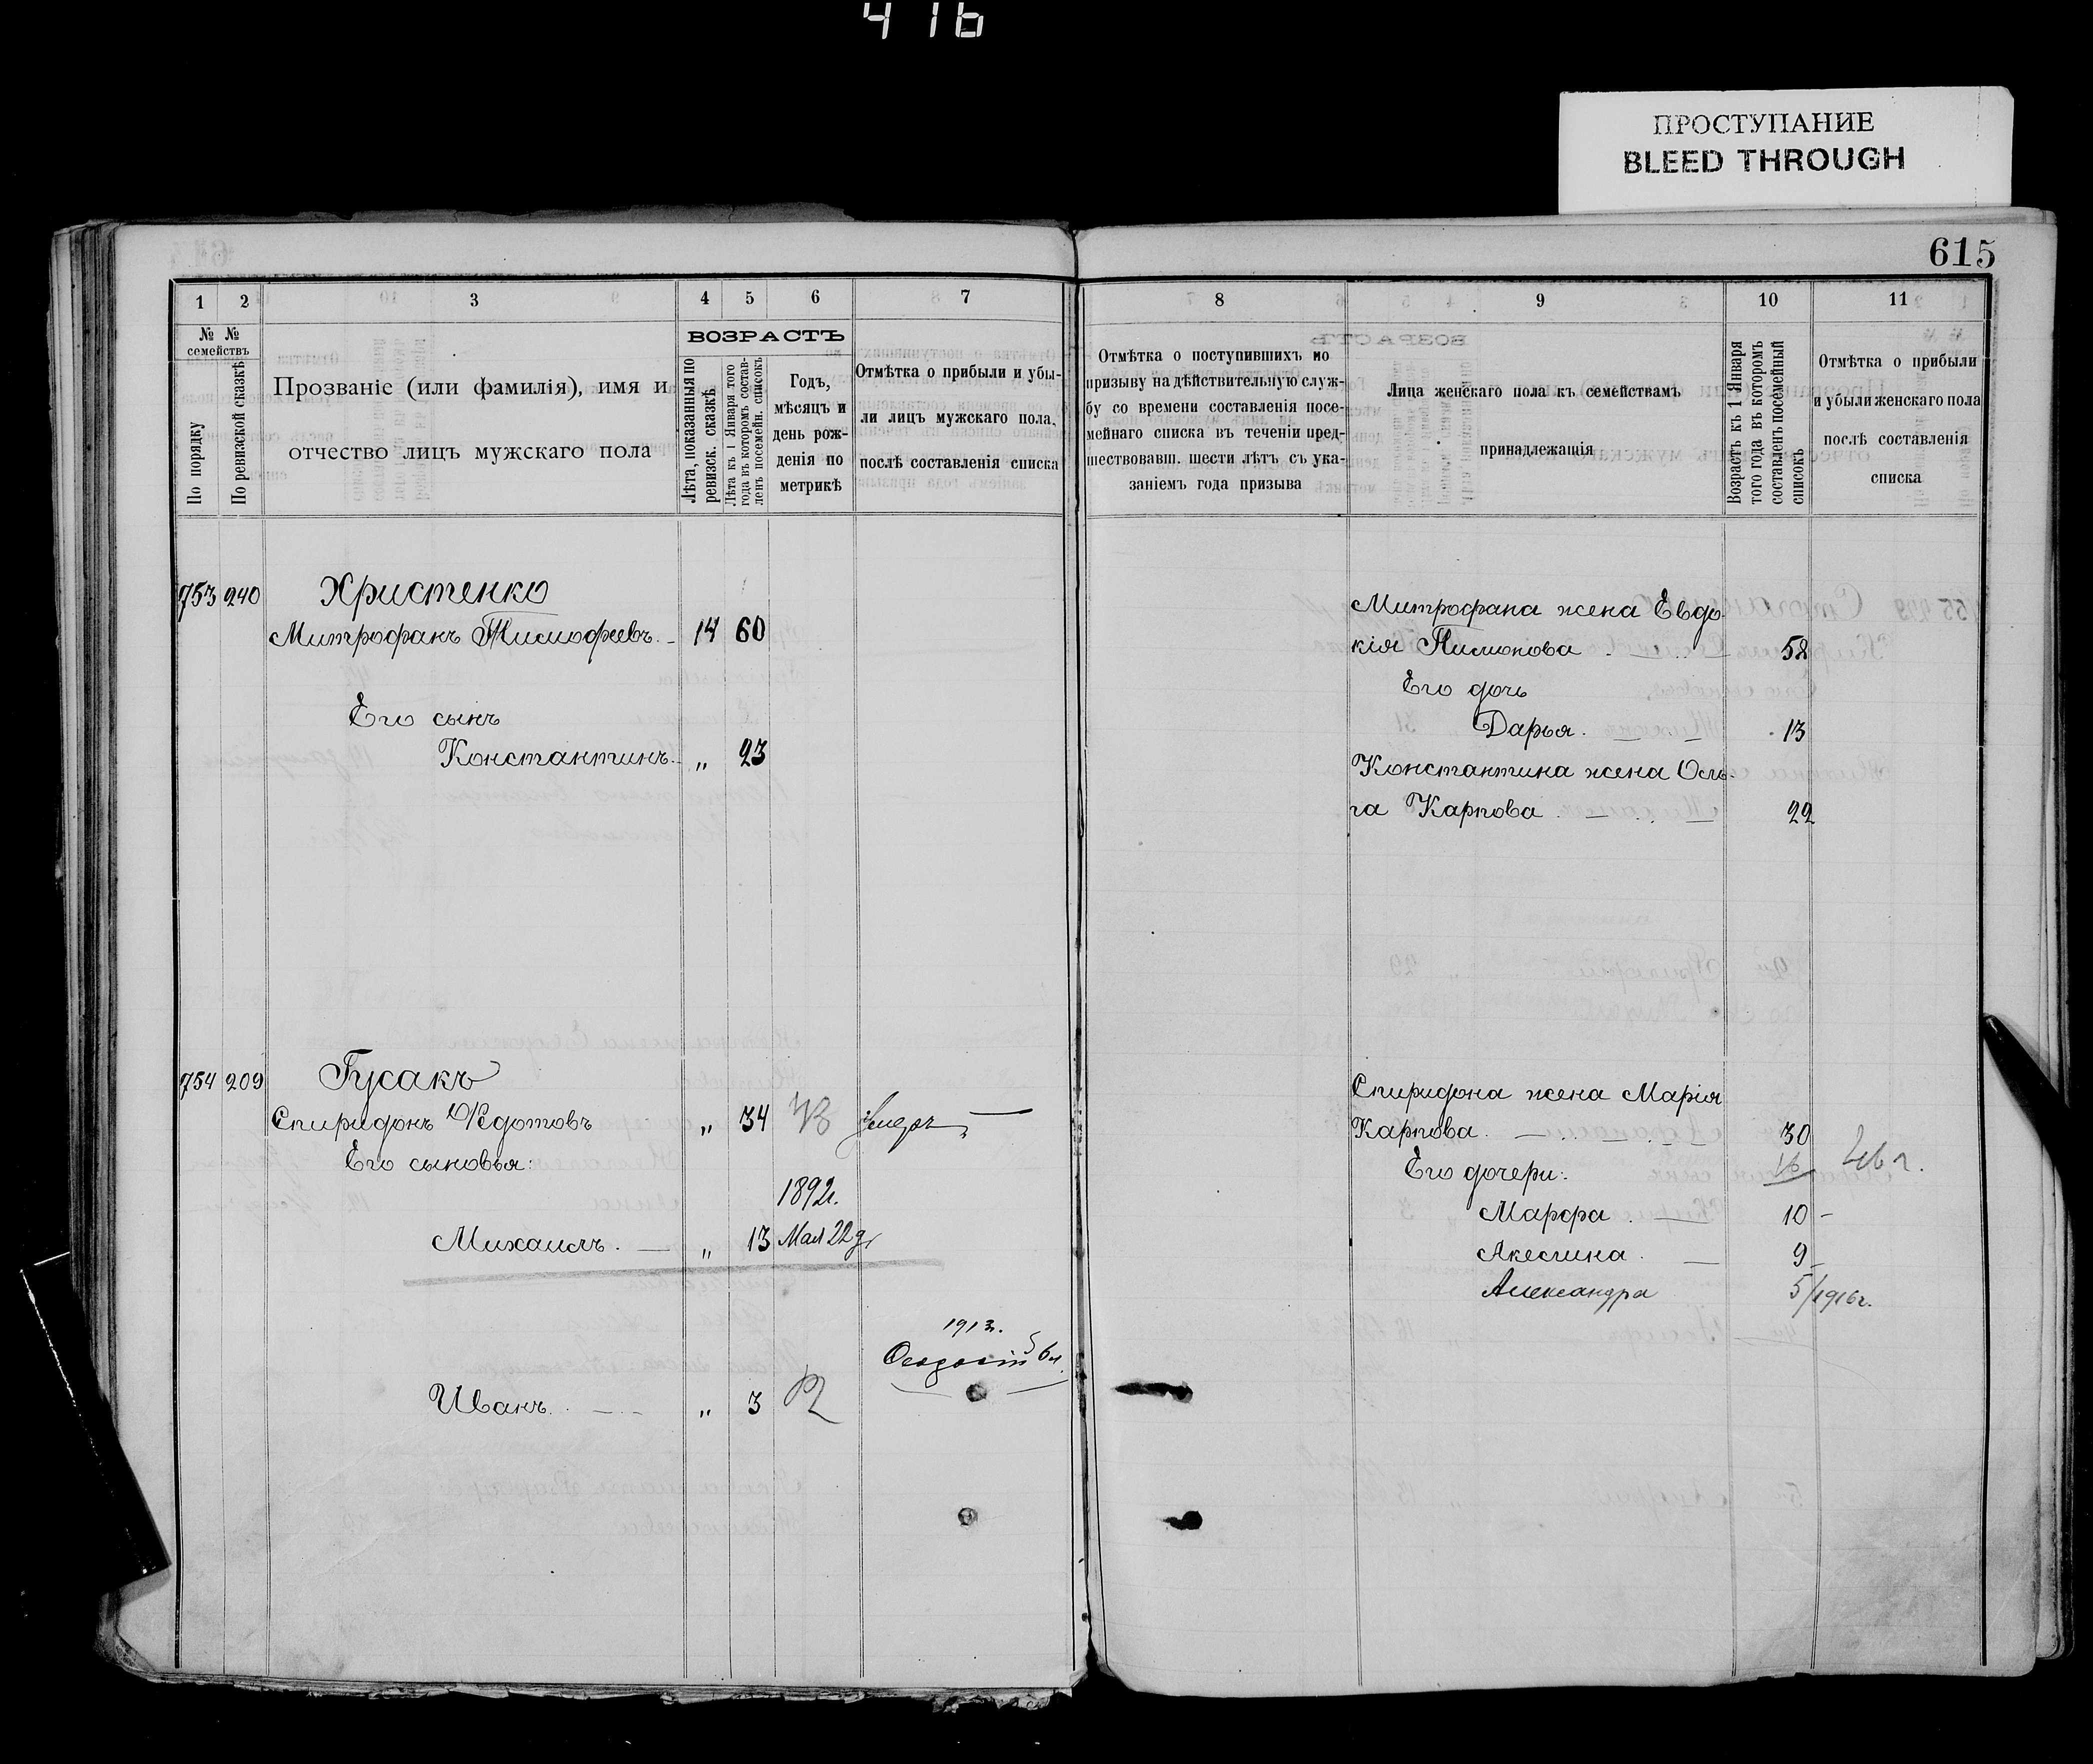 416
ПРОСТУПАНИЕ
BLEED THROUGH
615
1 2 3 4 5 6 7
№ № семействъ
По порядку
По ревизской сказкѣ
Прозваніе (или фамилія), имя и
отчество лицъ мужскаго пола
ВОЗРАСТЪ
Лѣта, показанныя по
ревизск. сказкѣ
Лѣта къ 1 Января того
года въ которомъ состав-
ленъ посемейн. списокъ
Годъ,
мѣсяцъ и
день рож-
денія по
метрикѣ
Отмѣтка о прибыли и убы-
ли лицъ мужскаго пола,
послѣ составленія списка
753 240 Христенко
Митрофанъ Тимофеевъ. 14 60
Его сынъ
Константинъ. „ 23
754 209 Гусакъ
Спиридонъ Ѳедотовъ „ 34 умеръ
Его сыновья:
1892г.
Михаилъ. „ 13 Мая 22 д.
1913г.
Ѳеодосій
Иванъ. „ 3
8 9 10 11
Отмѣтка о поступившихъ по
призыву на дѣйствительную служ-
бу со времени составленія посе-
мейнаго списка въ теченіи пред-
шествовавш. шести лѣтъ съ ука-
заніемъ года призыва
Лица женскаго пола къ семействамъ
принадлежащія
Возрастъ къ 1 Января
того года въ которомъ
составленъ посемейный
списокъ
Отмѣтка о прибыли
и убыли женскаго пола
послѣ составленія
списка
Митрофана жена Евдо-
кія Пимонова 58
Его дочь
Дарья. 13
Константина жена Оль-
га Карпова 22
Спиридона жена Марія
Карпова. 30
Его дочери: 16
Марфа 10 -
Акелина 9
Александра 5/1916г.